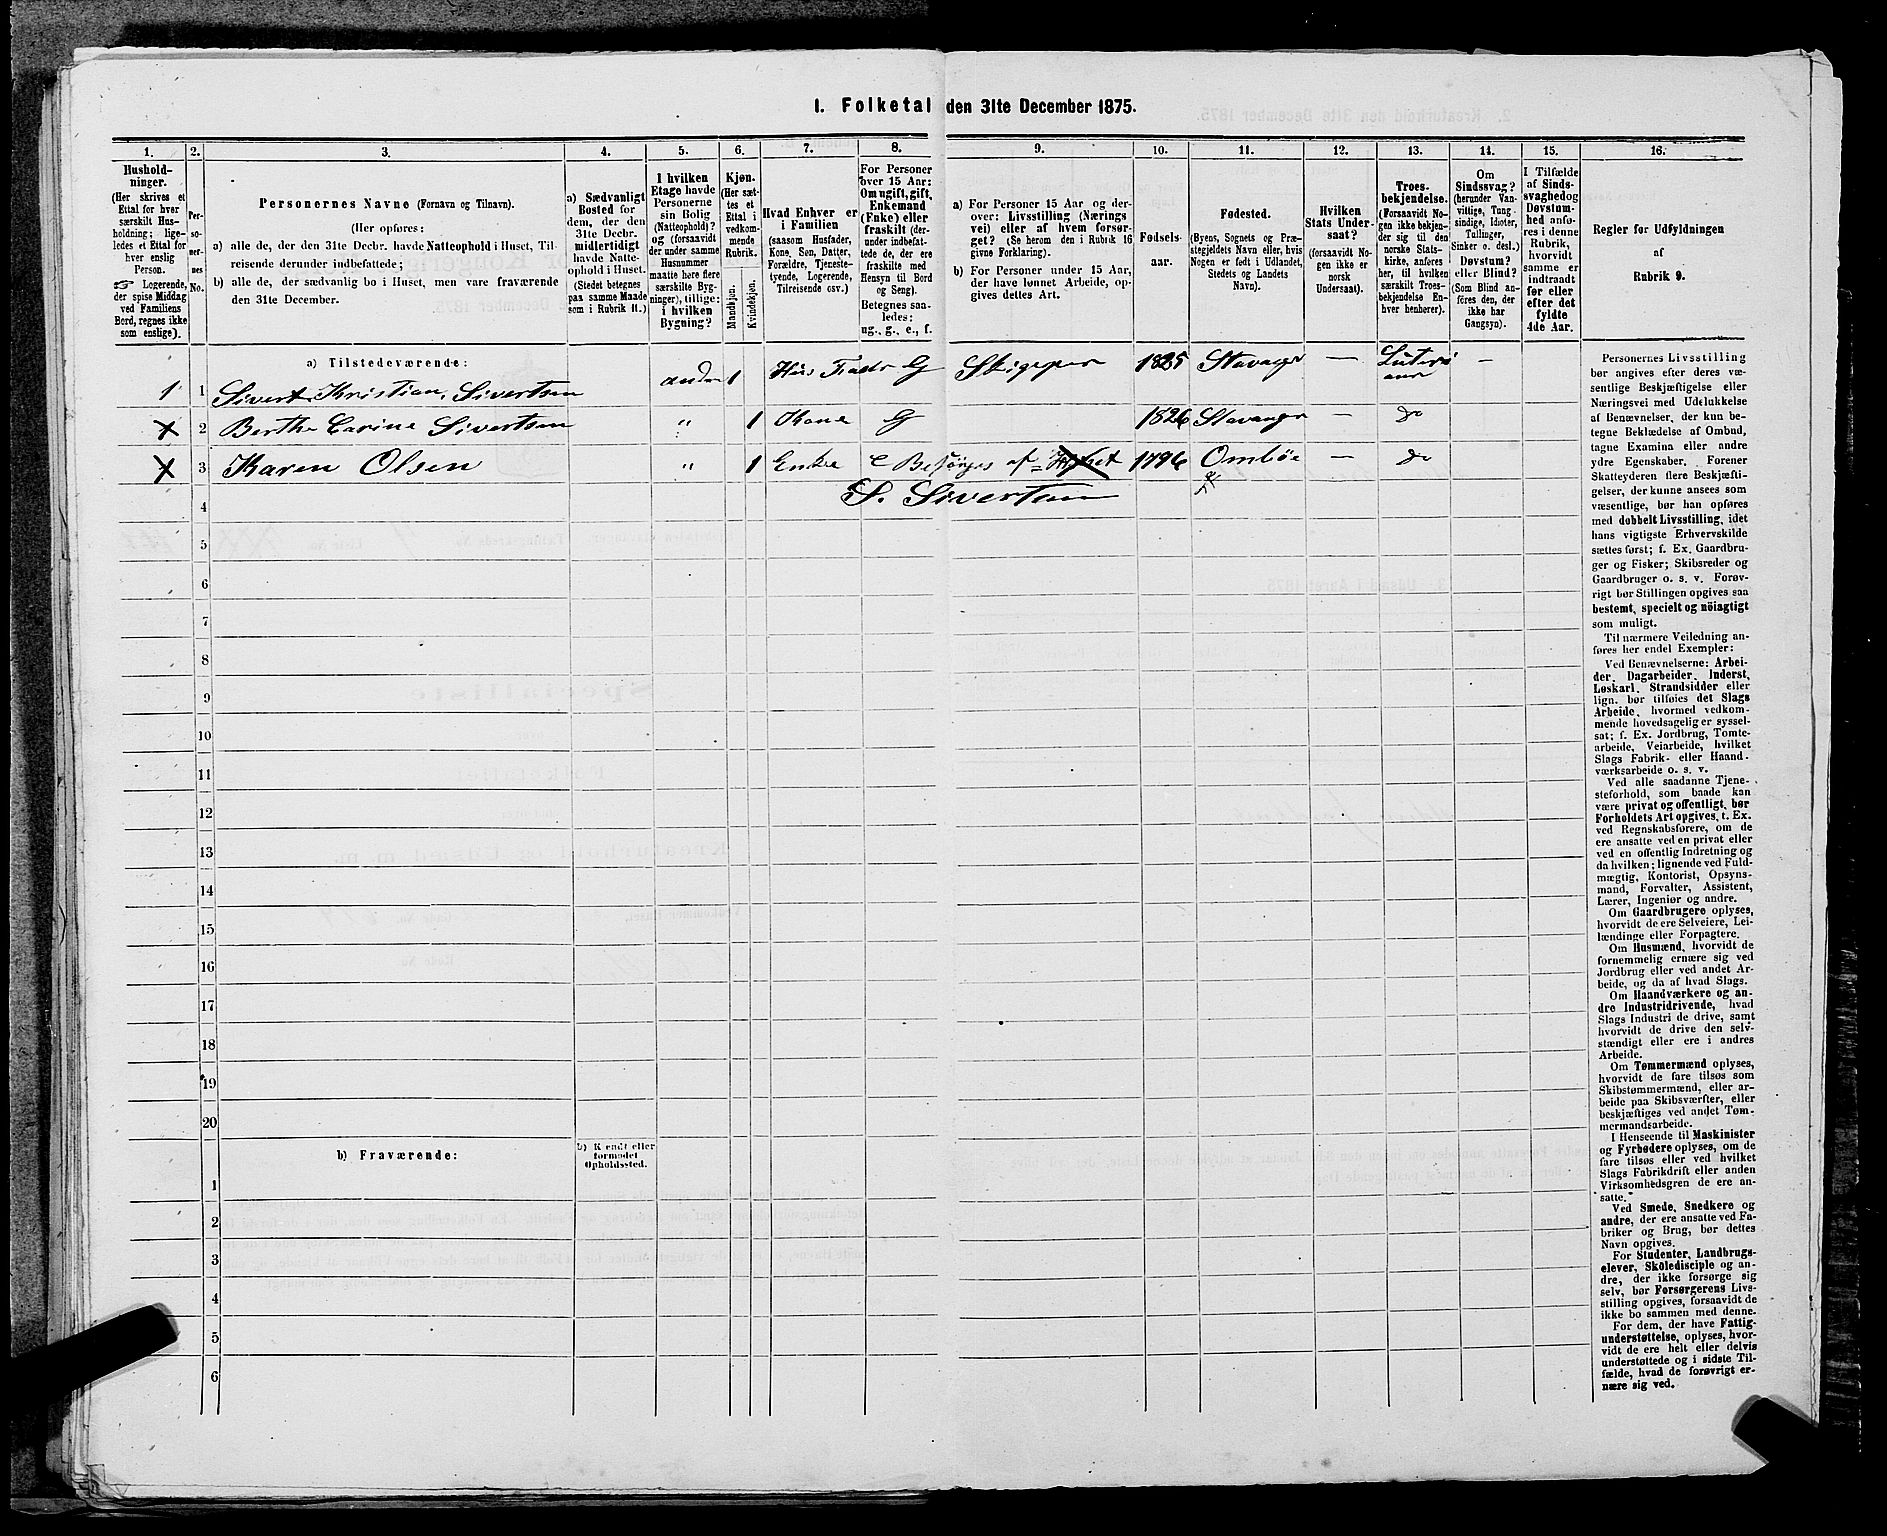 1. Folketal den 31te December 1875.
1. 2. 3. 4. 5. 6. 7. 8. 9. 10. 11. 12. 13. 14. 15. 16.
Hushold-
ninger.
(Her skrives et
Ettal for hver
særskilt Hus-
holdning; lige-
ledes et Ettal for
hver enslig
Person.
☞ Logerende,
der spise Middag
ved Familiens
Bord, regnes ikke
som enslige).
Per-
so-
ner-
nes
No.
Personernes Navne (Fornavn og Tilnavn).
(Her opføres:
a) alle de, der den 31te Decbr. havde Natteophold i Huset, Til-
reisende derunder indbefattede;
b) alle de, der sædvanlig bo i Huset, men vare fraværende
den 31te December.
a) Sædvanligt
Bosted for
dem, der den
31te Decbr.
midlertidigt
havde Natte-
ophold i Huset.
(Stedet betegnes
paa samme Maade
som i Rubrik 11.)
I hvilken
Etage havde
Personerne
sin Bolig
(Natteophold)?
og (forsaavidt
der under samme
Husnummer
maatte høre flere
særskilte Byg-
ninger), tillige:
i hvilken
Bygning?
Kjøn.
(Her sæt-
tes et
Ettal i
vedkom-
mende
Rubrik.
Mandkjøn.
Kvindekjøn.
Hvad Enhver er
i Familien
(saasom Husfader,
Kone, Søn, Datter,
Forældre, Tjeneste-
tyende, Logerende,
Tilreisende osv.)
For Personer
over 15 Aar:
Om ugift, gift,
Enkemand
(Enke) eller
fraskilt (der-
under indbefat-
tede de, der ere
fraskilte med
Hensyn til Bord
og Seng).
Betegnes saa-
ledes:
ug., g., e., f.
a) For Personer 15 Aar og der-
over: Livsstilling (Nærings
vei) eller af hvem forsør-
get? (Se herom den i Rubrik 16
givne Forklaring).
b) For Personer under 15 Aar,
der have lønnet Arbeide, op-
gives dettes Art.
Fødsels-
aar.
Fødested.
(Byens, Sognets og Præ-
stegjeldets Navn eller, hvis
Nogen er født i Udlandet,
Stedets og Landets
Navn).
Hvilken
Stats Under-
saat?
(forsaavidt No-
gen ikke er
norsk
Undersaat).
Troes-
bekjendelse.
(Forsaavidt No-
gen ikke bekjen-
der sig til den
norske Stats-
kirke, anføres
her, til hvilken
særskilt Troes-
bekjendelse En-
hver henhører).
Om
Sindssvag?
(herunder Van-
vittige, Tung-
sindige, Idioter,
Tullinger,
Sinker o. desl.)
Døvstum?
eller Blind?
(Som Blind an-
føres den, der
ikke har
Gangsyn).
I Tilfælde
af Sinds-
svaghed og
Døvstum-
hed anfø-
res i denne
Rubrik,
hvorvidt
samme er
indtraadt
før eller
efter det
fyldte
4de Aar.
Regler for Udfyldningen
af
Rubrik 9.
a) Tilstedeværende:
1 1 Sivert Kristian Sivertsen anden 1 Hus Fader G Skipper 1825 Stavanger — Luter — —
2 Berthe Carine Sivertsen " 1 Kone G 1826 Stavanger — do
3 Karen Olsen " 1 Enke E Besørges af 1796 Ombøe — do
4 S. Sivertsen
5
6
7
8
9
10
11
12
13
14
15
16
17
18
19
20
b) Fraværende:
b) Kjendt eller
formodet
Opholdssted.
1
2
3
4
5
6
Personernes Livsstilling
bør angives efter deres væ-
sentlige Beskjæftigelse eller
Næringsvei med Udelukkelse
af Benævnelser, der kun be-
tegne Beklædelse af Ombud,
tagne Examina eller andre
ydre Egenskaber. Forener
Skatteyderen flere Beskjæfti-
gelser, der kunne ansees som
væsentlige, bør han opføres
med dobbelt Livsstilling, idet
hans vigtigste Erhvervskilde
sættes først; f. Ex. Gaardbru-
ger og Fisker; Skibsreder og
Gaardbruger o. s. v. Forøv-
rigt bør Stillingen opgives saa
bestemt, specielt og nöiagtigt
som muligt.
Til nærmere Veiledning an-
føres her endel Exempler:
Ved Benævnelserne: Arbei-
der, Dagarbeider, Inderst,
Løskarl, Strandsidder eller
lign. bør tilføies det Slags
Arbeide, hvormed vedkom-
mende hovedsagelig er syssel-
sat; f. Ex. Jordbrug, Tomte-
arbeide, Veiarbeide, hvilket
Slags Fabrik- eller Haand-
værksarbeide o. s. v.
Ved alle saadanne Tjene-
steforhold, som baade kan
være privat og offentligt, bør
Forholdets Art opgives, t. Ex.
ved Regnskabsførere, om de
ere ansatte ved en privat eller
ved en offentlig Indretning og
da hvilken; lignende ved Fuld-
mægtig, Kontorist, Opsyns-
mand, Forvalter, Assistent,
Lærer, Ingeniør og andre.
Om Gaardbrugere oplyses,
hvorvidt de ere Selveiere, Lei-
lændinge eller Forpagtere.
Om Husmænd, hvorvidt de
fornemmelig ernære sig ved
Jordbrug eller ved andet Ar-
beide, og da af hvad Slags.
Om Haandværkere og an-
dre Industridrivende, hvad
Slags Industri de drive, samt
hvorvidt de drive den selv-
stændigt eller ere i andres
Arbeide.
Om Tømmermænd oplyses,
hvorvidt de fare tilsøs som
Skibstømmermænd, eller ar-
beide paa Skibsværfter, eller
beskjæftiges ved andet Tøm-
mermandsarbeide.
I Henseende til Maskinister
og Fyrbødere oplyses, om de
fare tilsøs eller ved hvilket
Slags Fabrikdrift eller anden
Virksomhedsgren de ere an-
satte.
Ved Smede, Snedkere og
andre, der ere ansatte ved Fa-
briker og Brug, bør dettes
Navn opgives.
For Studenter, Landbrugs-
elever, Skoledisciple og an-
dre, der ikke forsørge sig
selv, bør Forsørgerens Livs-
stilling opgives, forsaavidt de
ikke bo sammen med denne.
For dem, der have Fattig-
understøttelse, oplyses, hvor-
vidt de ere helt eller delvis
understøttede og i sidste Til-
fælde, hvad de forøvrigt er-
nære sig ved.